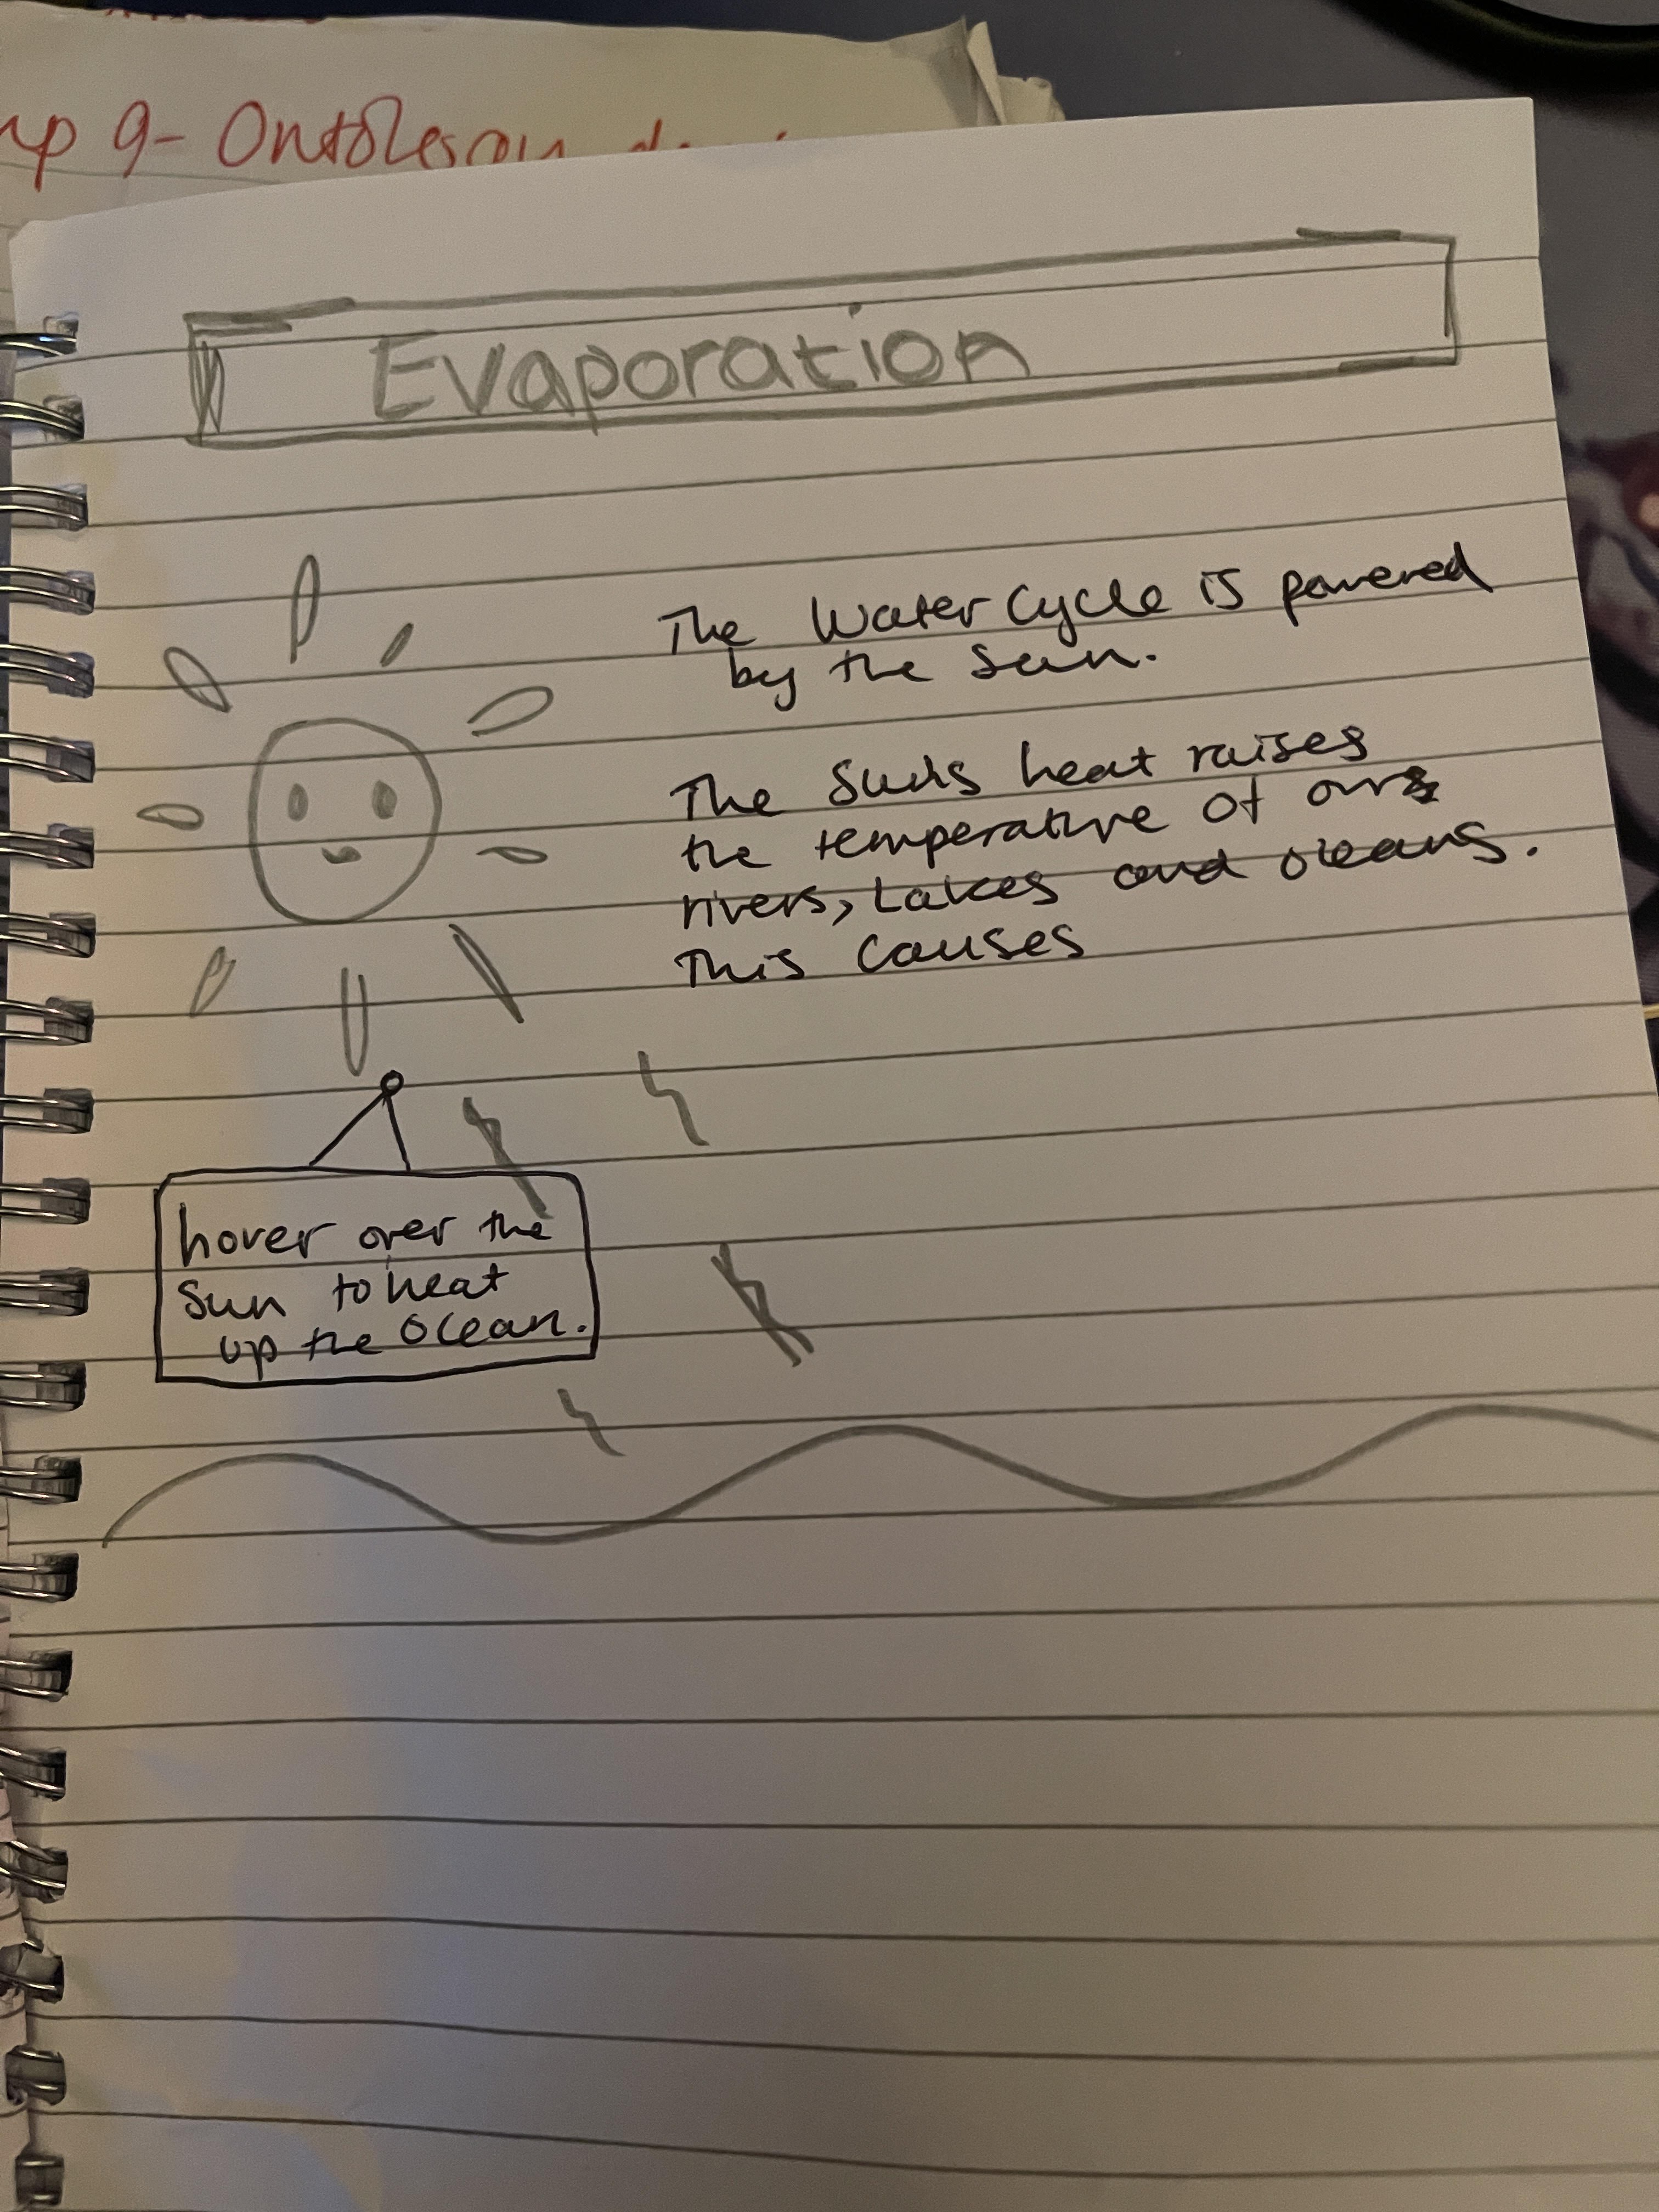 9-
Evaporation
The Water Cycle is powered
by the Sun.
The Sun's heat raises
the temperature of our
rivers, Lakes and oceans.
This causes
hover over the
Sun to heat
up the Ocean.